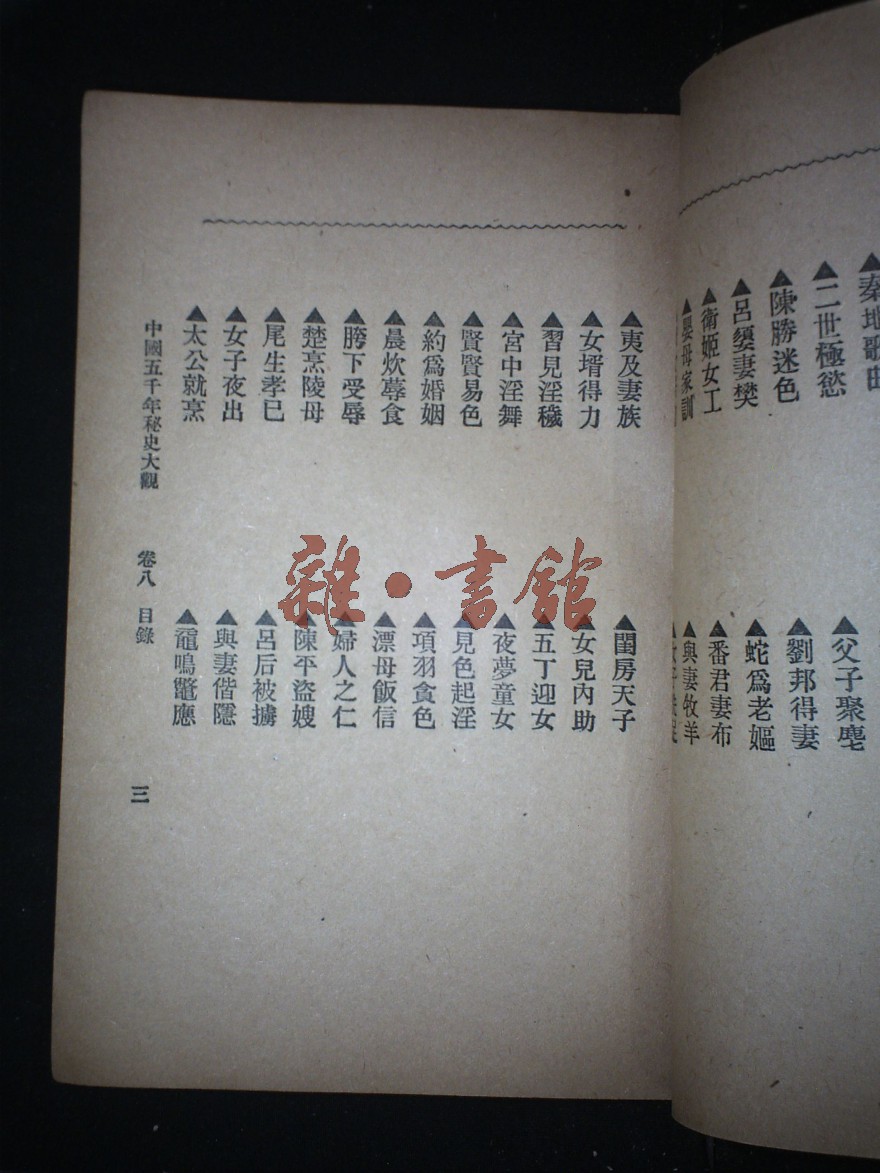 秦地歌
二世極慾
陳勝迷色
呂嬃妻樊
衛姬女工
嬰母家訓
父子聚麀
劉邦得妻
蛇爲老嫗
番君妻布
與妻牧羊
夷及妻族
女壻得力
習見淫穢
宮中淫舞
賢賢易色
約爲婚姻
晨炊蓐食
胯下受辱
楚烹陵母
尾生孝已
女子夜出
太公就烹
閨房天子
女兒內助
五丁迎女
夜夢童女
見色起淫
項羽貪色
漂母飯信
婦人之仁
陳平盜嫂
呂后被擄
與妻偕隱
黿鳴鼈應
中國五千年秘史大觀 卷八 目錄 三
雜·書館